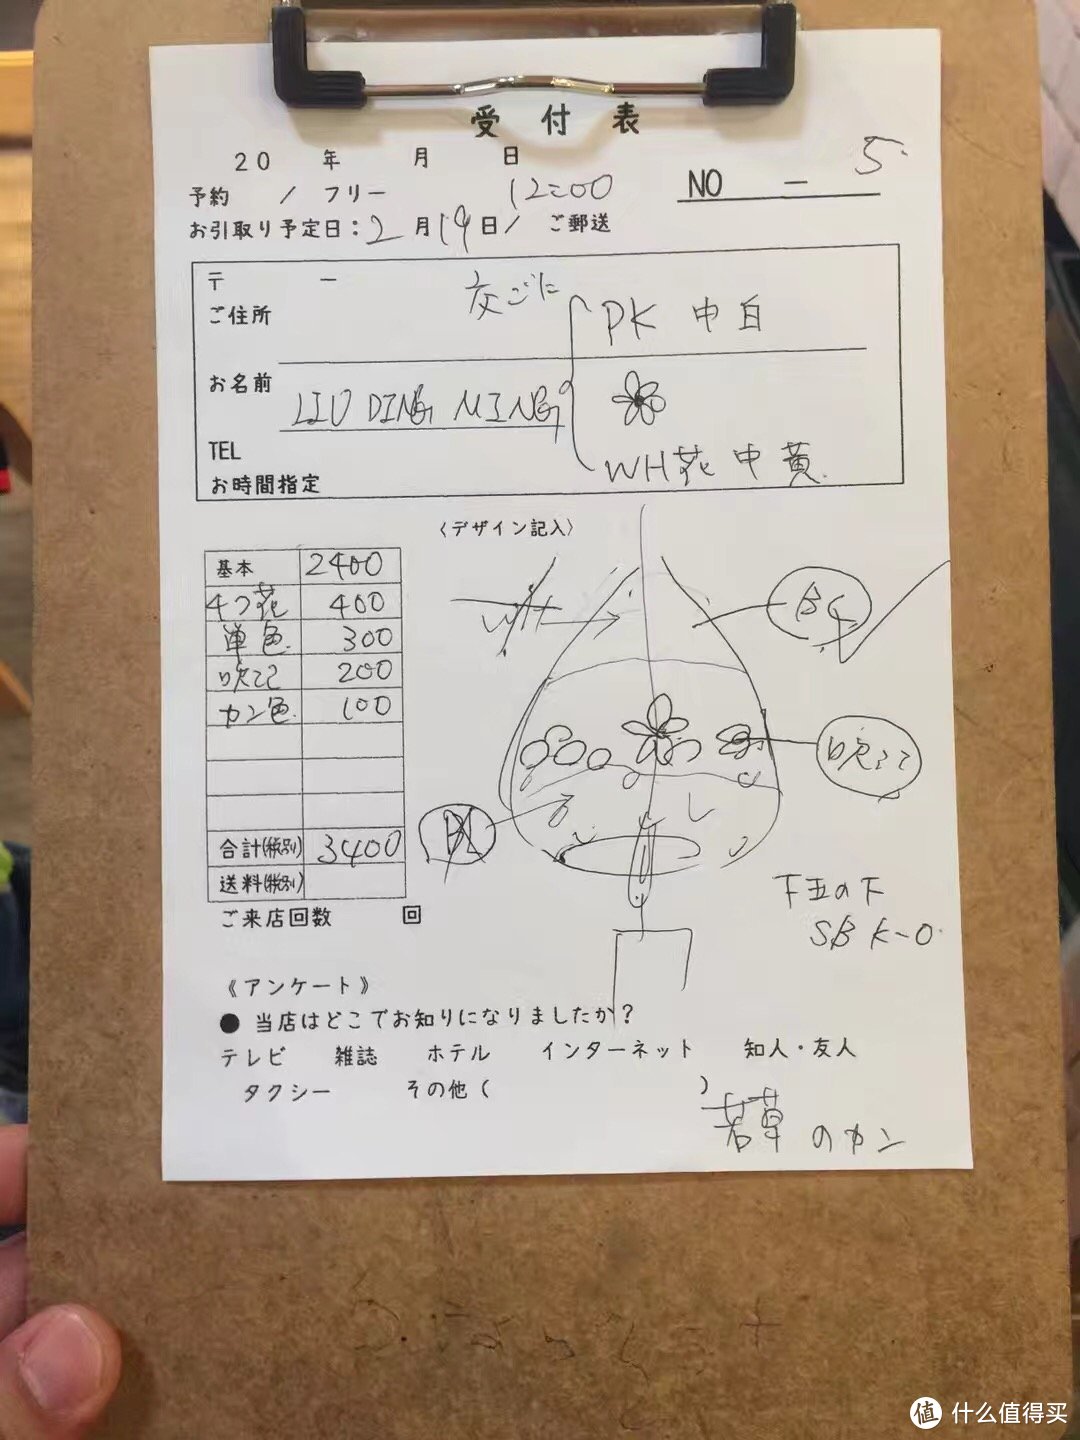 受付表
20 年 月 日
NO － 5
予約 / フリー 12:00
お引取り予定日：2月19日/ ご郵送
〒 －
交ごに
ご住所
PK 中白
お名前 LIU DING MING
TEL
WH花 中黄
お時間指定
〈デザイン記入〉
基本 2400
4つ花 400
単色 300
吹ココ 200
カン色 100
合計(税別) 3400
送料(税別)
WH
BG
吹ココ
BL
下玉の下
SBK-O
ご来店回数 回
《アンケート》
● 当店はどこでお知りになりましたか？
テレビ 雑誌 ホテル インターネット 知人・友人
タクシー その他（ ）
若草 のカン
值 什么值得买